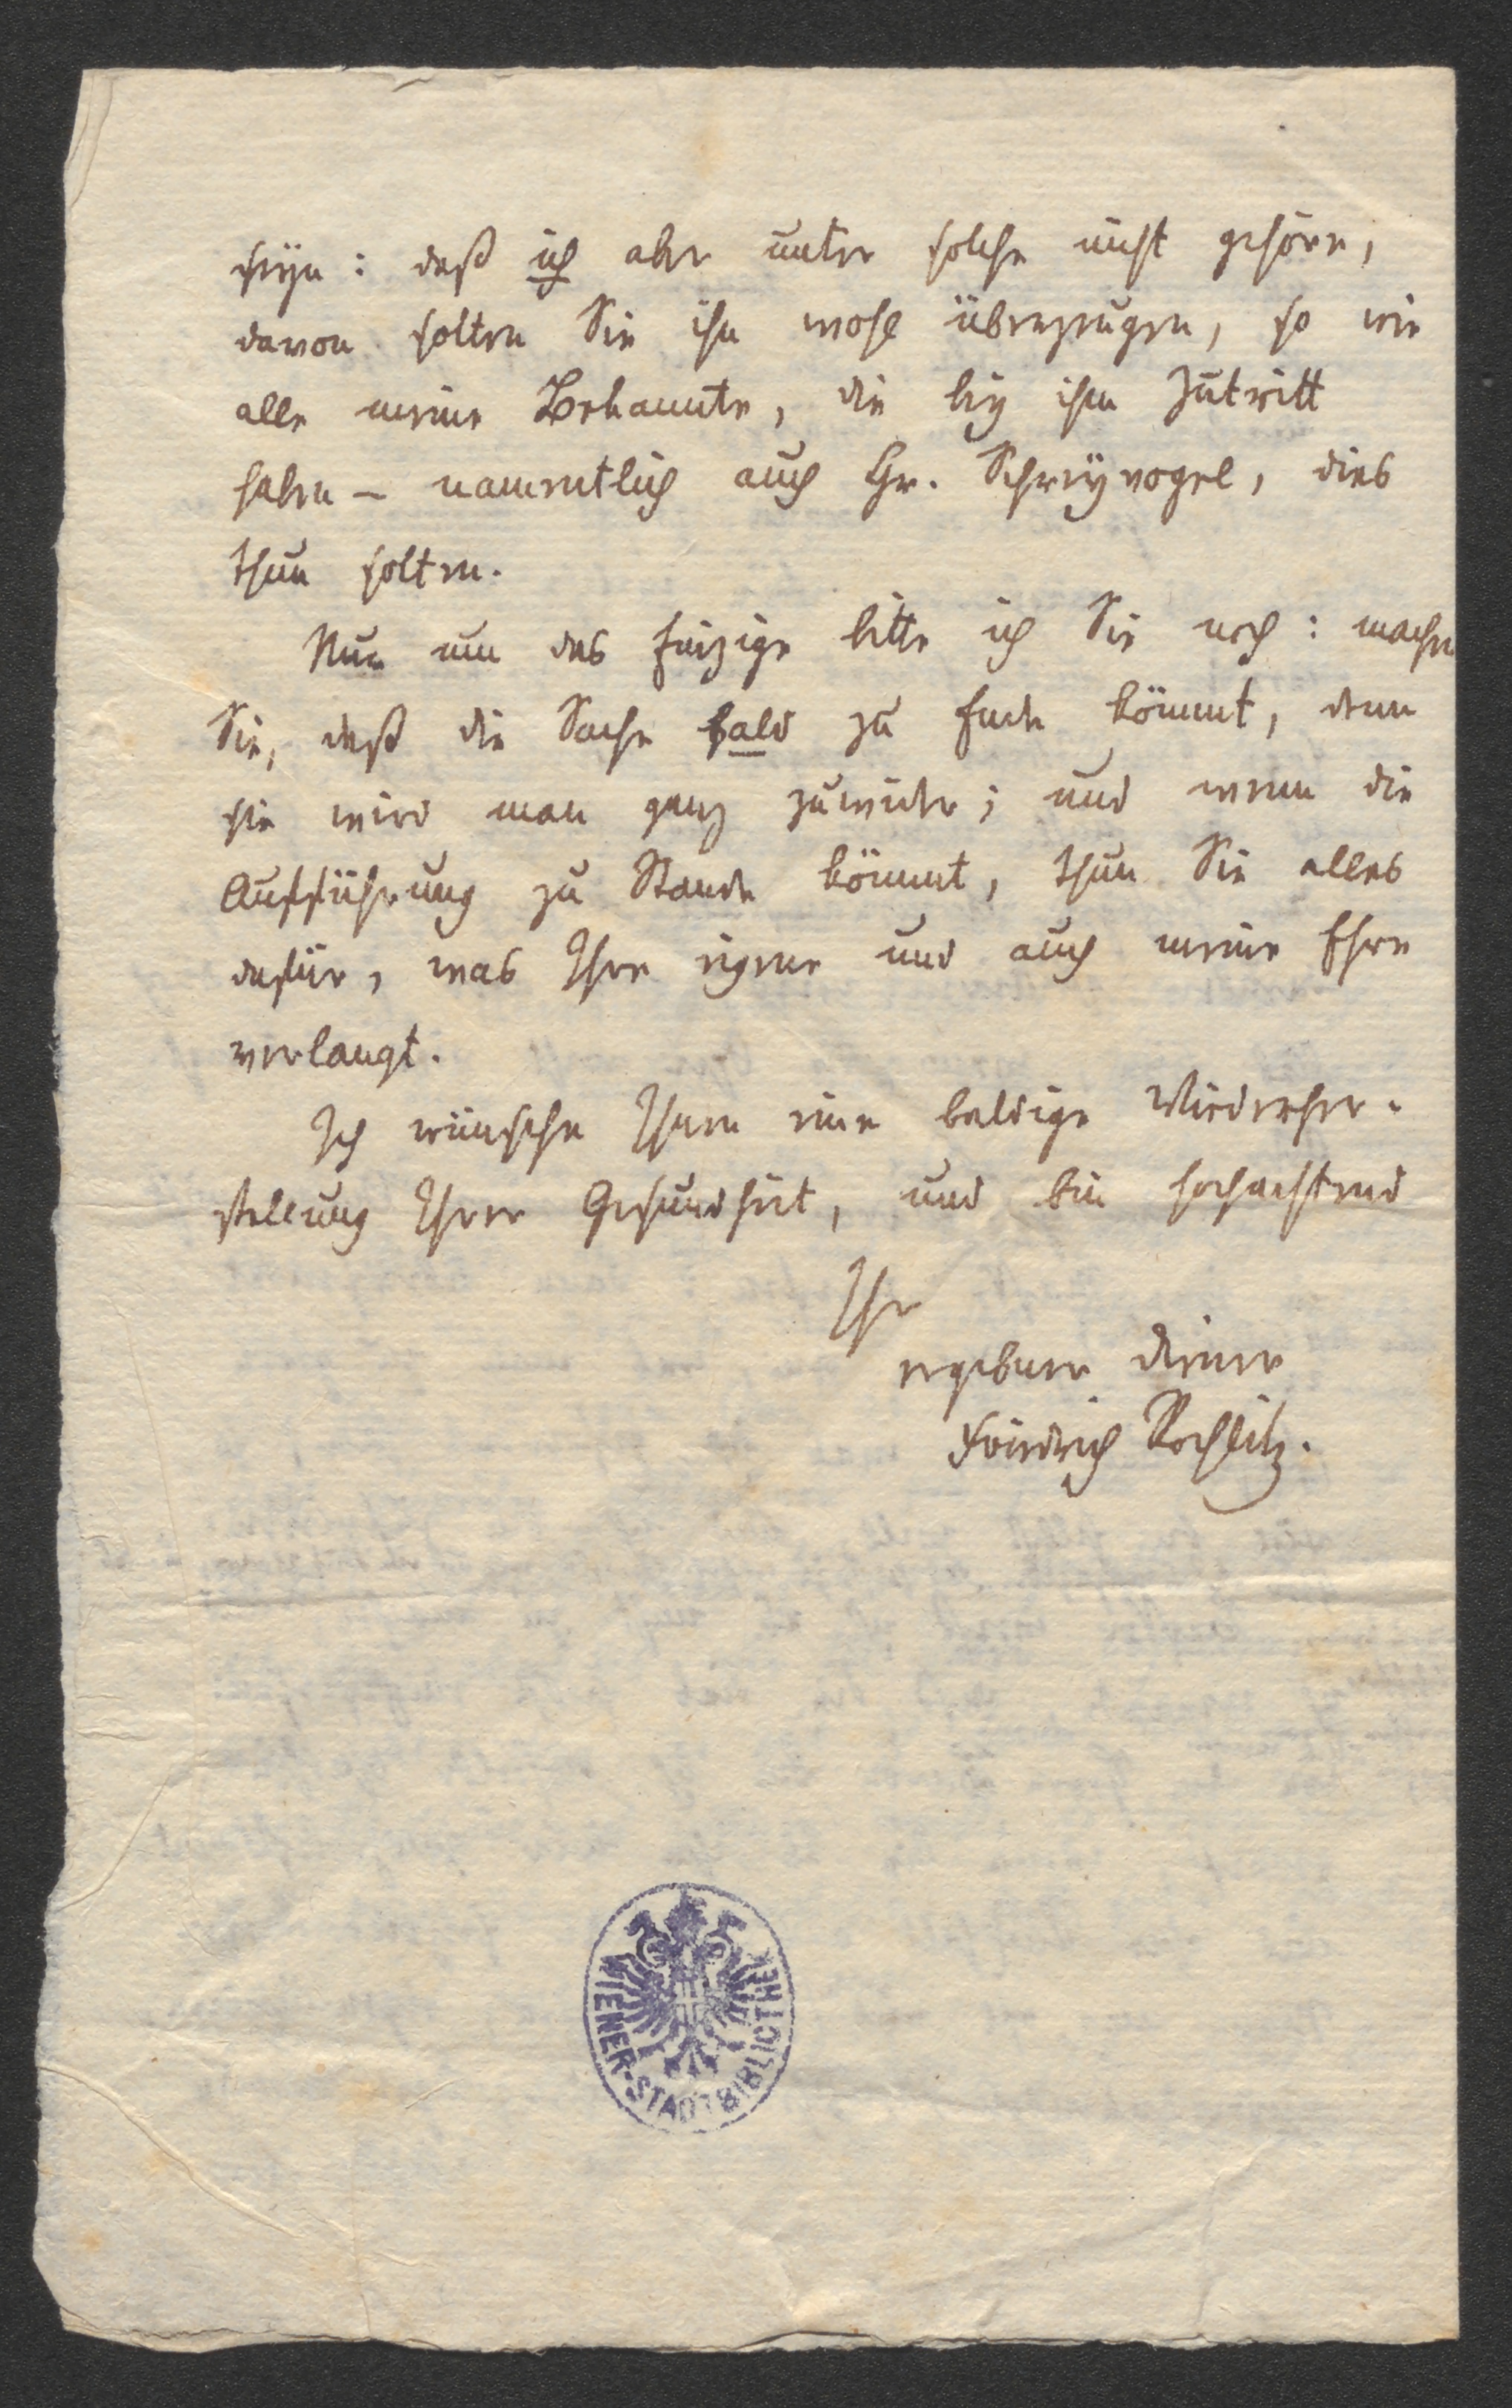 seyn: daß ich aber unter solche nicht gehöre,
davon solten Sie ihn wohl überzeugen, so wie
alle meine Bekannte, die bey ihm Zutritt
haben – namentlich auch Hr. Schreyvogel, dies
thun solten.
Nur um das Einzige bitte ich Sie noch: machen
Sie, daß die Sache bald zu Ende kömmt, denn
sie wird man ganz zuwider; und wenn die
Aufführung zu Stande kömmt, thun Sie alles
dafür, was Ihre eigene und auch meine Ehre
verlangt.
Ich wünsche Ihnen eine baldige Wiederher-
stellung Ihrer Gesundheit, und bin hochachtend
Ihr
ergebner Diener
Friedrich Rochlitz.
WIENER-STADTBIBLIOTHEK